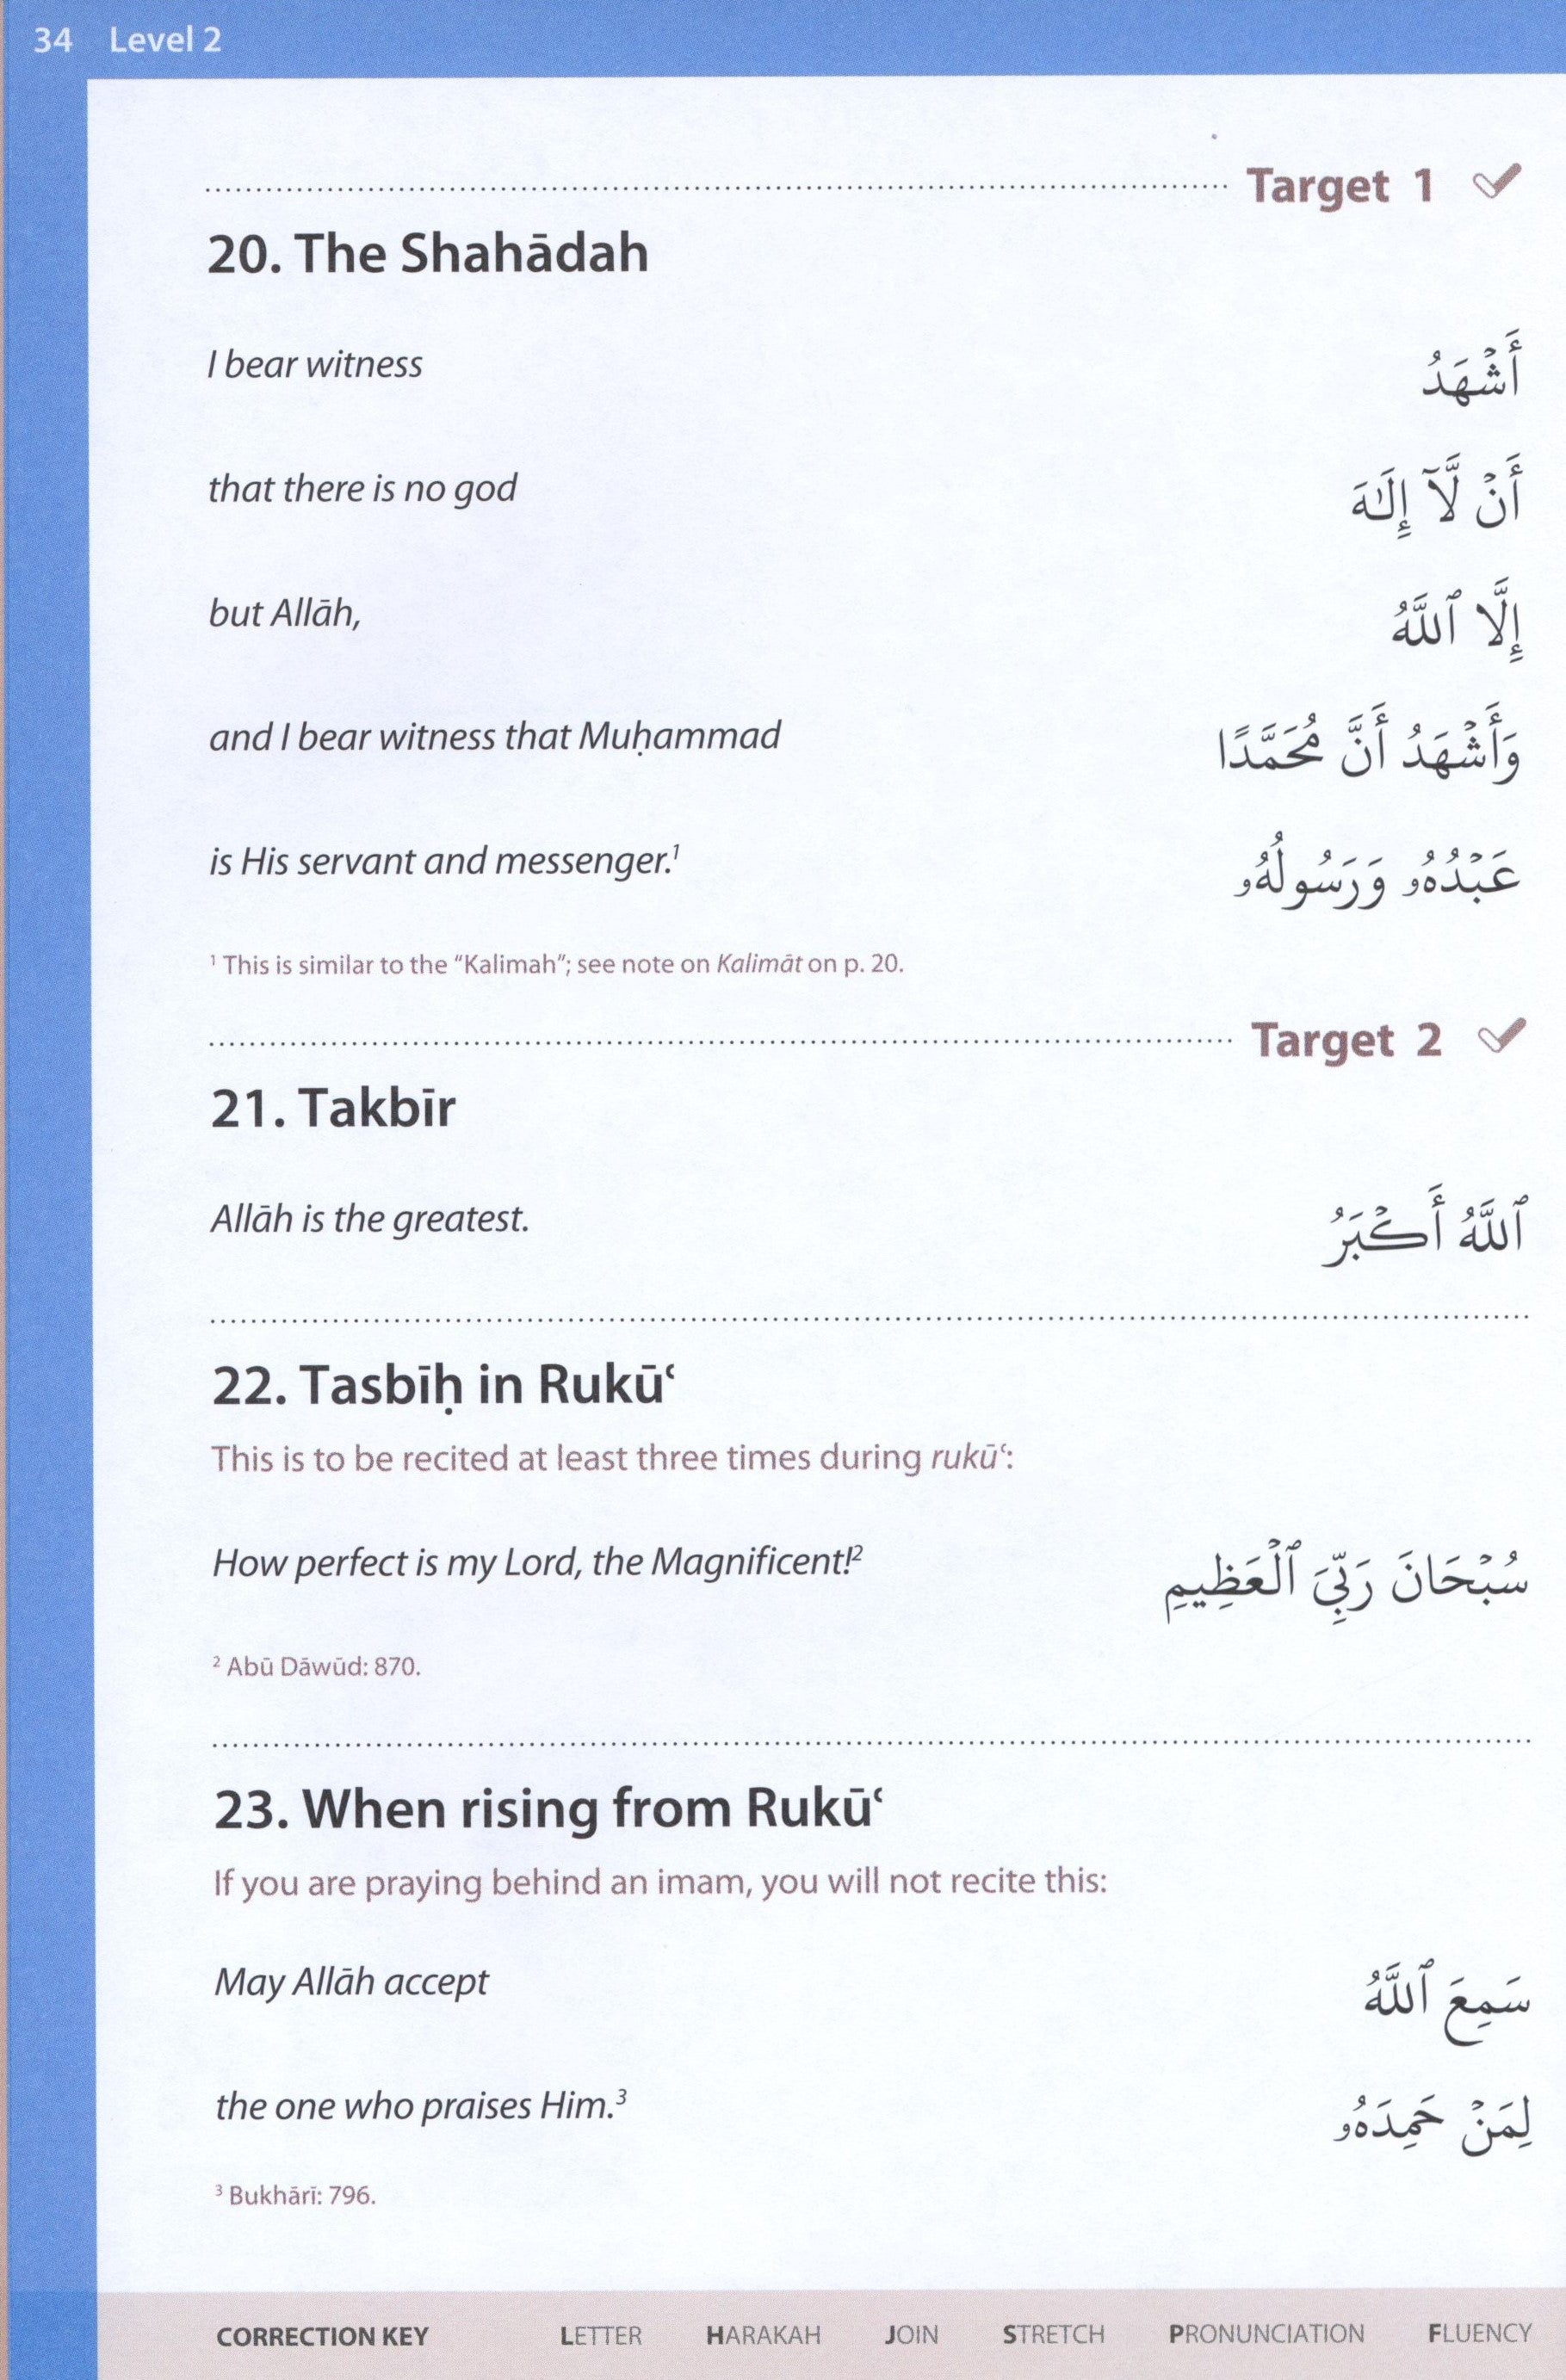 34 Level 2
Target 1
20. The Shahādah
I bear witness أَشْهَدُ
that there is no god أَنْ لَّآ إِلَـٰهَ
but Allāh, إِلَّا ٱللَّهُ
and I bear witness that Muḥammad وَأَشْهَدُ أَنَّ مُحَمَّدًا
is His servant and messenger.¹ عَبْدُهُۥ وَرَسُولُهُۥ
¹ This is similar to the “Kalimah”; see note on Kalimāt on p. 20.
Target 2
21. Takbīr
Allāh is the greatest. ٱللَّهُ أَكْبَرُ
22. Tasbīḥ in Rukūʿ
This is to be recited at least three times during rukūʿ:
How perfect is my Lord, the Magnificent!² سُبْحَانَ رَبِّيَ ٱلْعَظِيمِ
² Abū Dāwūd: 870.
23. When rising from Rukūʿ
If you are praying behind an imam, you will not recite this:
May Allāh accept سَمِعَ ٱللَّهُ
the one who praises Him.³ لِمَنْ حَمِدَهُۥ
³ Bukhārī: 796.
CORRECTION KEY LETTER HARAKAH JOIN STRETCH PRONUNCIATION FLUENCY